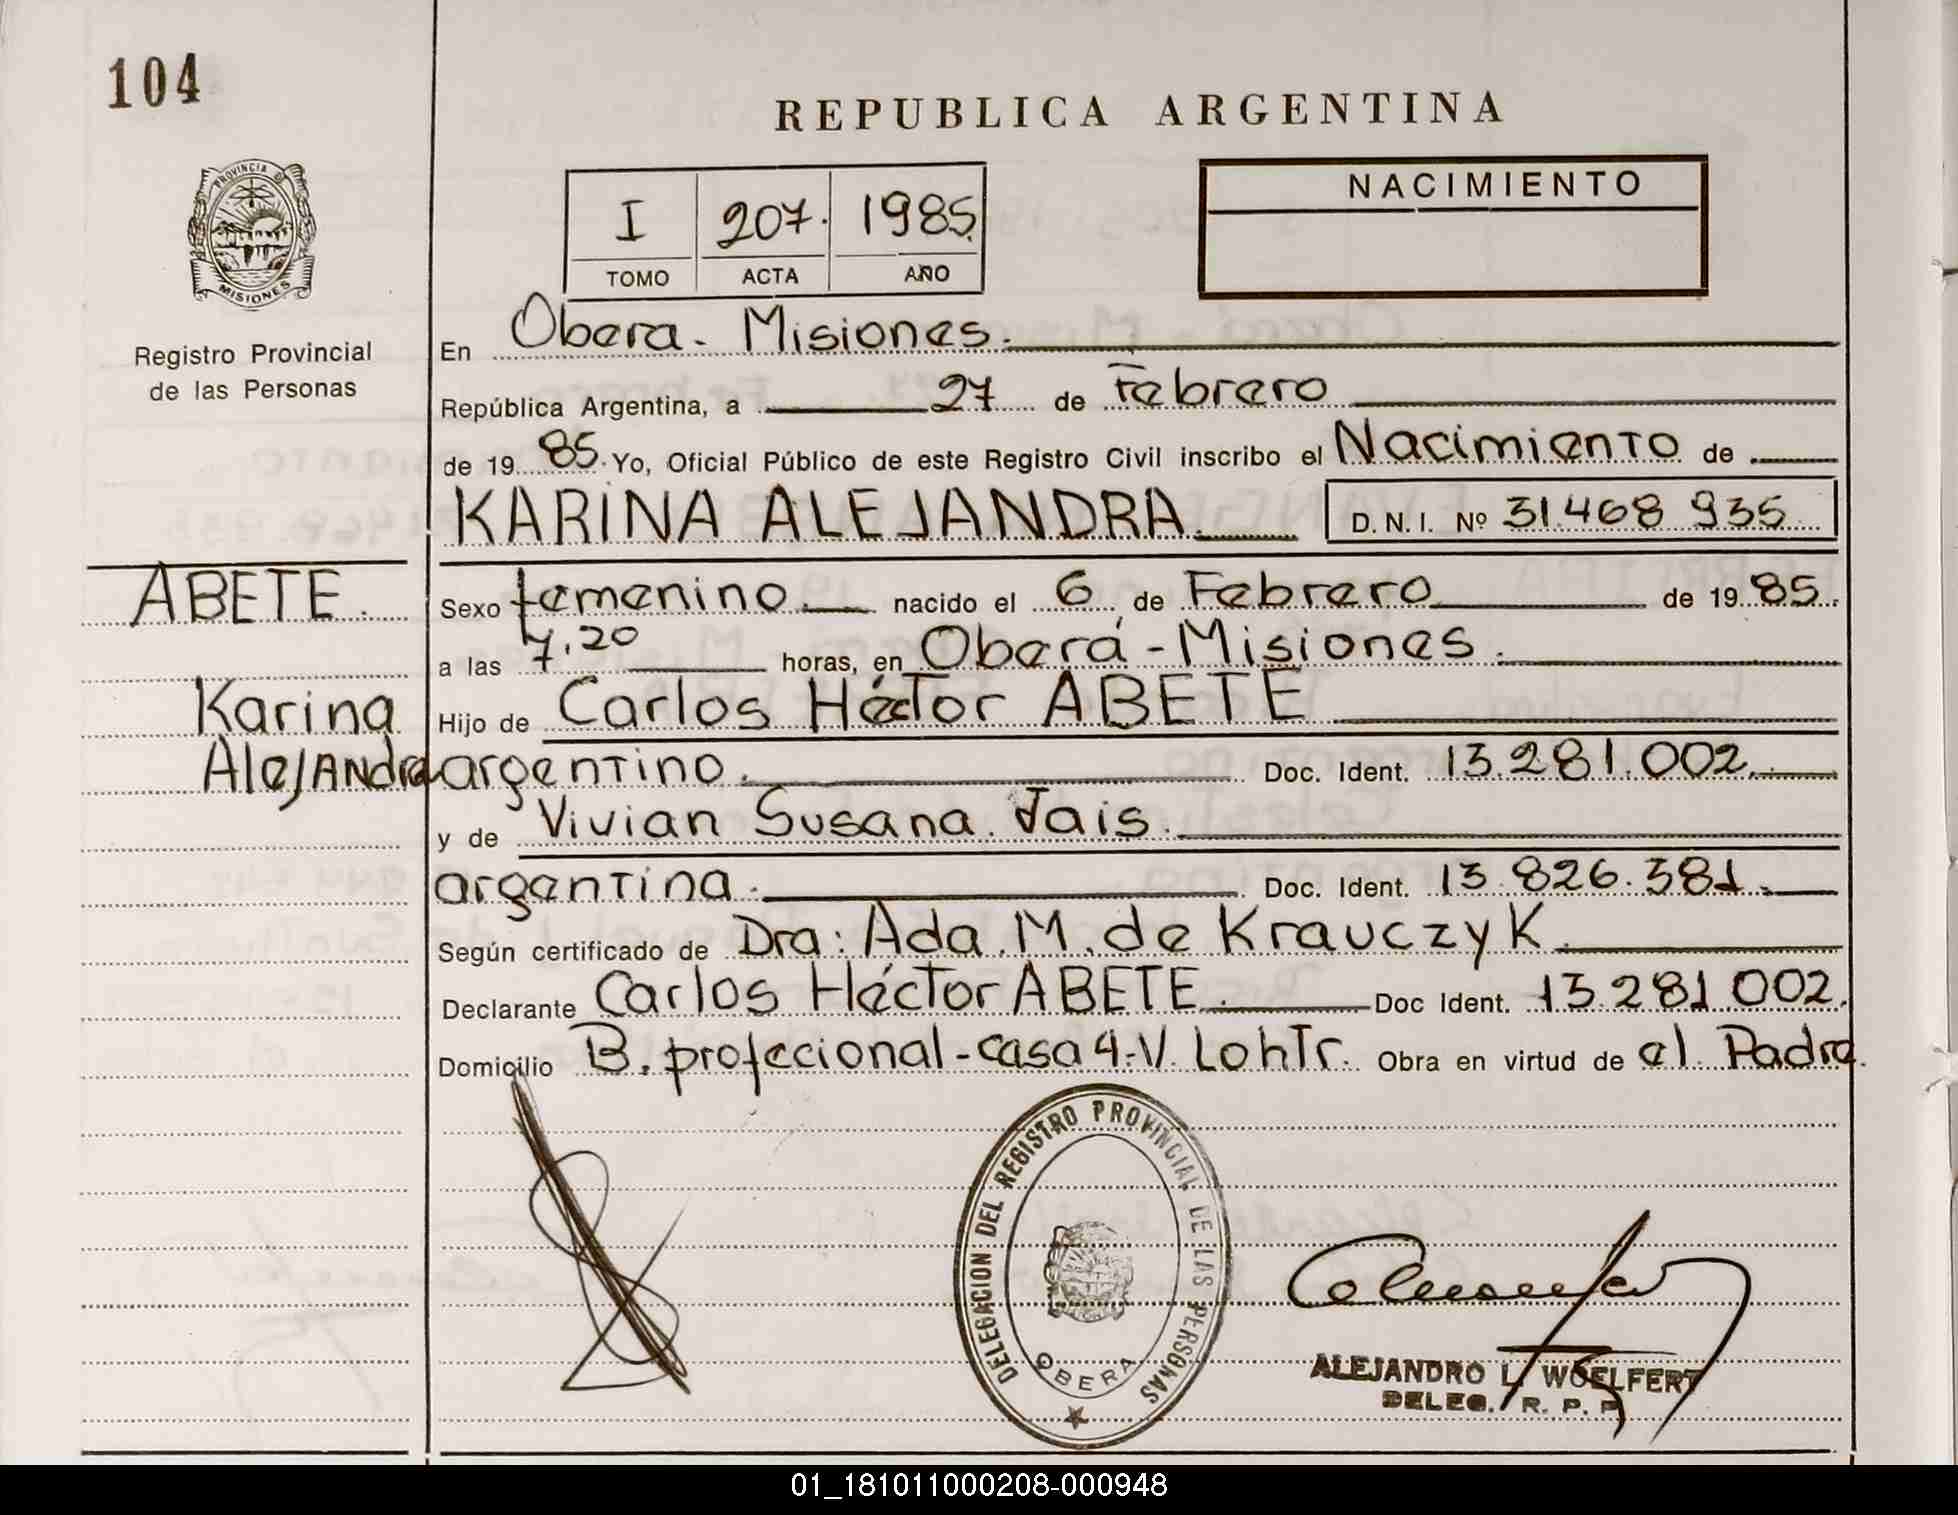 104
REPUBLICA ARGENTINA
PROVINCIA D
MISIONES
I 207. 1985.
TOMO ACTA AÑO
NACIMIENTO
Registro Provincial
de las Personas
En Obera - Misiones.
República Argentina, a 27 de Febrero
de 19 85. Yo, Oficial Público de este Registro Civil inscribo el Nacimiento de
KARINA ALEJANDRA. D. N. I. Nº 31.468 935
ABETE.
Sexo femenino nacido el 6 de Febrero de 19 85.
a las 7.20 horas, en Oberá - Misiones.
Karina
Alejandra
Hijo de Carlos Héctor ABETE
argentino. Doc. Ident. 13.281.002.
y de Vivian Susana Jais.
argentina. Doc. Ident. 13.826.381.
Según certificado de Dra: Ada. M. de Krauczyk.
Declarante Carlos Héctor ABETE. Doc Ident. 13.281.002.
Domicilio B. profecional - casa 4. V. Lohtr. Obra en virtud de el Padre.
DELEGACION DEL REGISTRO PROVINCIAL DE LAS PERSONAS
OBERA
ALEJANDRO L. WOELFERT
DELEG. R. P. P.
01_181011000208-000948